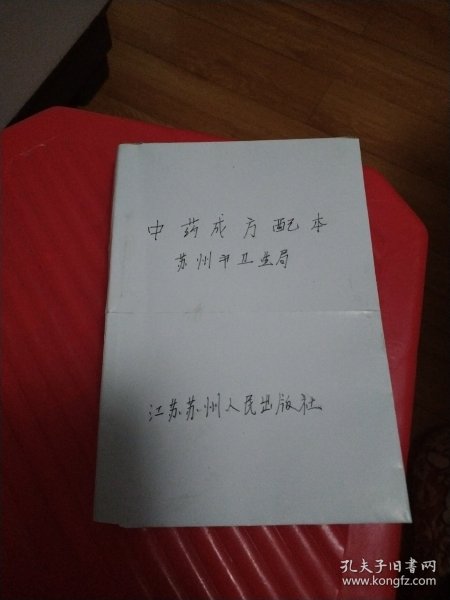 中药成方配本
苏州市卫生局
江苏苏州人民出版社
孔夫子旧书网
www.kongfz.com